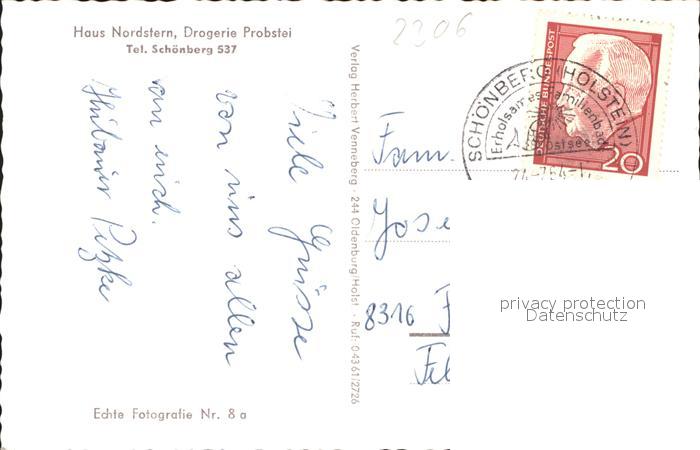 Haus Nordstern, Drogerie Probstei
Tel. Schönberg 537
Viele Grüsse
von uns allen
an euch.
Echte Fotografie Nr. 8 a
Verlag Herbert Venneberg · 244 Oldenburg/Holst · Ruf: 04361/2726
2306
SCHÖNBERG (HOLSTEIN)
Erholsames Familienbad
Ostsee
DEUTSCHE BUNDESPOST
20
Fam.
Jose
8316 F
privacy protection
Datenschutz